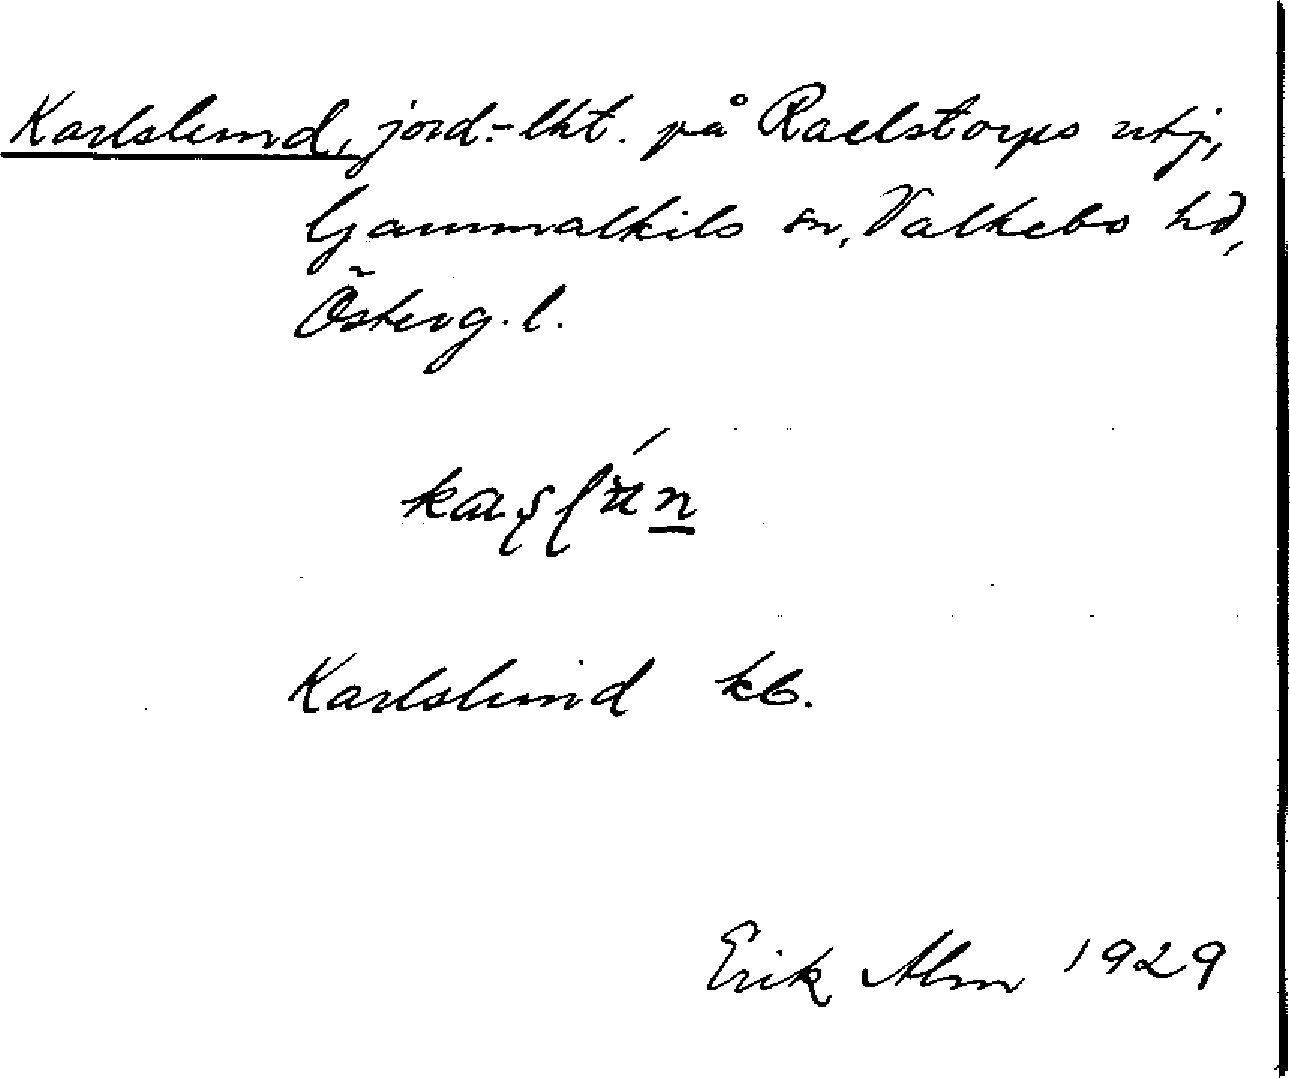 Karlslund, jord.-lht. på Raelstorps utj,
Gammalkils sn, Valkebo hd,
Österg.l.
Karlslund kb.
Erik Alm 1929